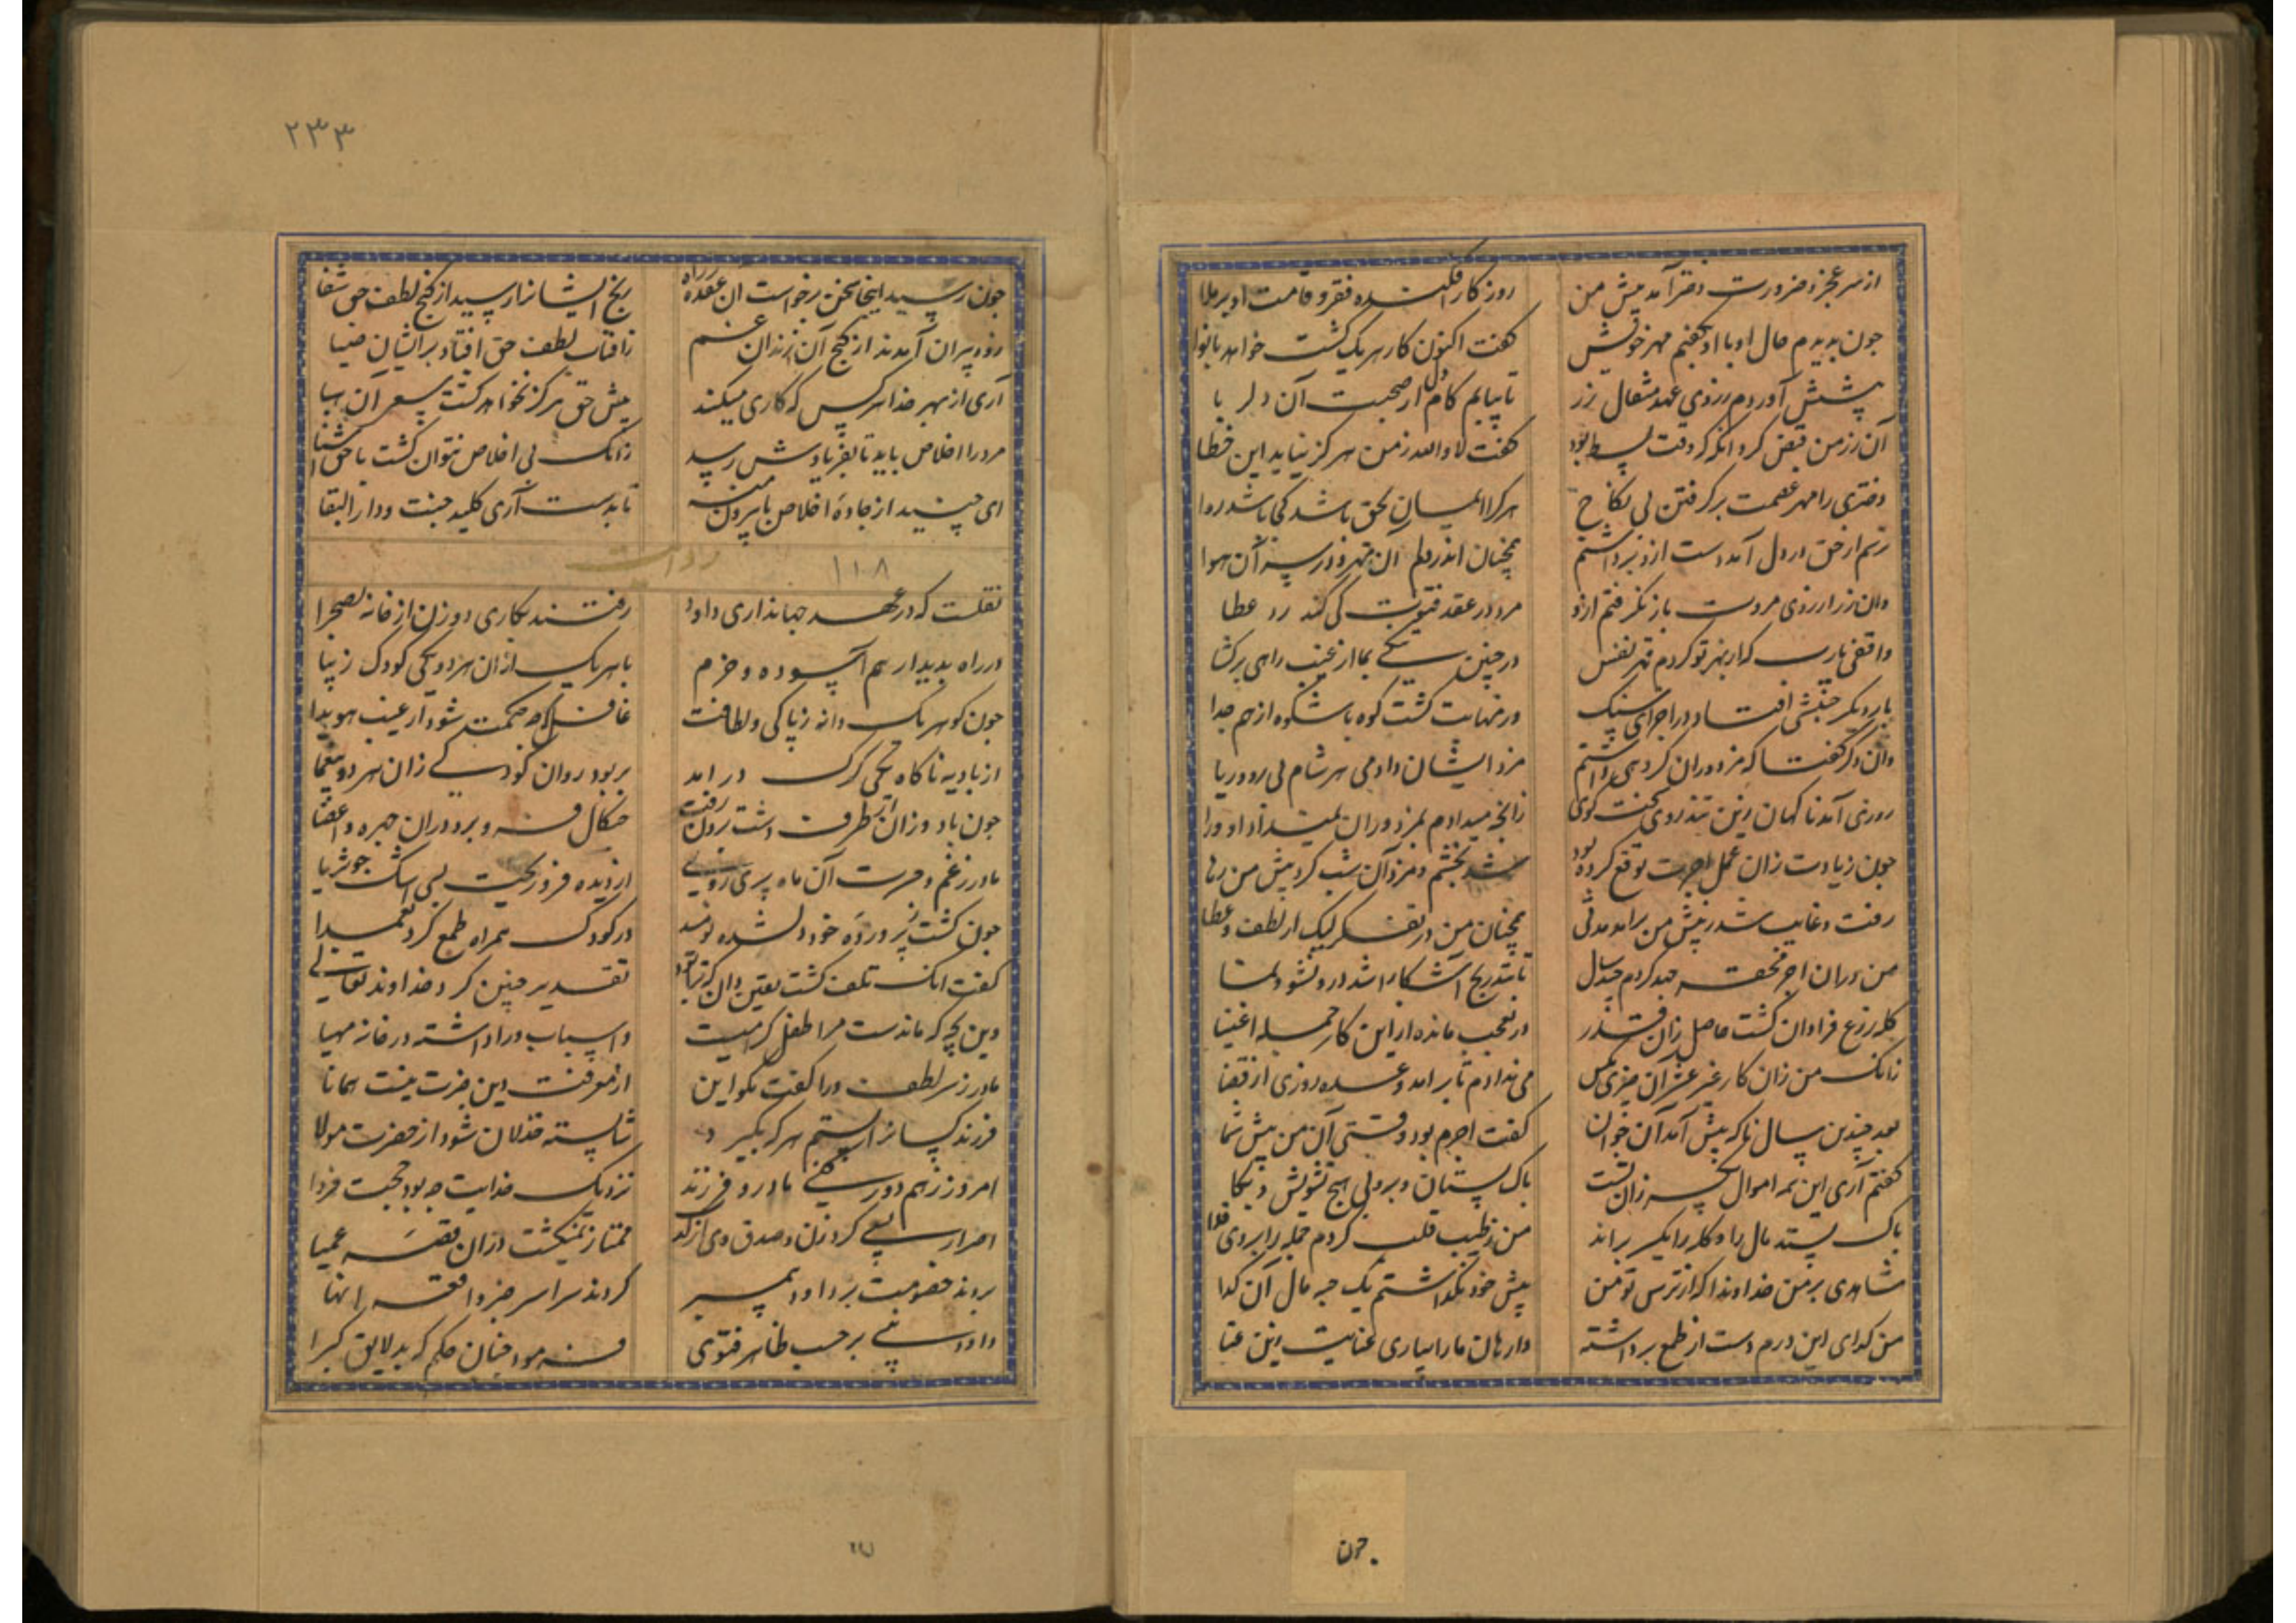 از سر عجز و ضرورت دختر آمد پیش من
روزگار افکنده فقر و قامت او بر ملا
چون بدیدم حال او با او بگفتم مهر خویش
گفت اکنون کار هر یک گشت خواهد با نوا
پیشش آوردم ز روی عهد مثقال زر
تا بیابم کام دل از صحبت آن دلربا
آن زر من قبض کرد آنگه که وقت بسط بود
گفت لا والله ز من هرگز نیاید این خطا
دختری را مهر عصمت برگرفتن بی نکاح
هر کرا ایمان بحق باشد کجا باشد روا
ترسم از حق در دل آمد دست ازو برداشتم
همچنان اندر دلم آن مهر و در سر آن هوا
وان زر از روی مروت باز نگرفتم ازو
مرد در عقد فتوت کی کند رد عطا
واقفی یارب که از بهر تو کردم قهر نفس
در چنین بما از غیب راهی برگشا
بار دیگر جنبشی افتاد در اجزای سنگ
ور مهابت گشت کوه باشکوه از هم جدا
وان دگر گفتا که مزدوران کرد می داشتم
مزد ایشان دادمی هر شام بی روی و ریا
روزی آمد ناگهان زین تندروی سخت گوی
زانچه میدادم بمزدوران نمیداد او ورا
چون زیادت زان عمل اجرت توقع کرده بود
شد بخشم و مزد آن شب کرد پیش من رها
رفت و غایب شد ز پیش من برآمد مدتی
همچنان من در تفکر لیک از لطف و عطا
من دران اجر محقر جهد کردم چند سال
تا بتدریج آشکارا شد درو نشو و نما
گله و زرع فراوان گشت حاصل زان قدر
در تعجب مانده از این کار جمله اغنیا
زانک من زان کار غیر عشر آن چیزی بکس
می ندادم تا برآمد وعده روزی از قضا
بعد چندین سال ناگه پیش آمد آن جوان
گفت اجرم بود وقتی آن من پیش شما
گفتم آری این همه اموال یکسر زان تست
پاک بستان و ببر بی هیچ تشویش و بکا
پاک بستد مال را و گله را یکسر براند
من ز طیب قلب کردم جمله را بروی فدا
شاهدی بر من خداوندا که از ترس تو من
پیش خود نگذاشتم یک حبه مال آن گدا
من گدای این درم دست از طمع برداشته
وارهان ما را بیاری عنایت زین عنا
.چون
۲۳۳
چون رسید اینجا سخن برخواست آن عقده ز راه
رنج ایشان را رسید از گنج لطف حق شفا
زود بیران آمدند از کنج آن زندان غم
زآفتاب لطف حق افتاد بر ایشان ضیا
آری از بهر خدا هر کس که کاری میکند
پیش حق هرگز نخواهد گشت سعی آن هبا
مرد را اخلاص باید تا بفریادش رسد
زانک بی اخلاص نتوان گشت با حق آشنا
ای جنید از جاده اخلاص پا بیرون منه
تا بدست آری کلید جنت و دار البقا
روایت
۱۱۰۸
نقلست که در عهد جهانداری داود
رفتند بکاری دو زن از خانه بصحرا
در راه بدیدار هم آسوده و خرم
با هر یک ازان هر دو یکی کودک زیبا
چون گوهر یک دانه ز پاکی و لطافت
غافل که چه حکمت شود از غیب هویدا
از بادیه ناگاه یکی گرگ در آمد
بربود روان کودکی زان هر دو بیغما
چون باد وزان زان طرف دشت برون رفت
چنگال فرو برد دران چهره و اعضا
مادر ز غم و حسرت آن ماه پری روی
از دیده فرو ریخت بسی اشک چو ثریا
چون گشت ز پرورده خود دل شده نومید
در کودک همراه طمع کرد بعمدا
گفت انک تلف گشت یقین دان که ز تو بود
تقدیر چنین کرد خداوند تعالی
وین بچه که ماندست مرا طفل گرامیست
و اسباب ورا داشته در خانه مهیا
مادر ز سر لطف ورا گفت مگو این
از معرفت این جزت نیست همانا
فرزند کسان را بستم هر که بگیرد
شایسته خذلان شود از حضرت مولا
امروز ز هم دور کنی مادر و فرزند
نزدیک خدایت چه بود حجت فردا
اصرار بسی کرد زن و صدق وی از کذب
ممتاز نمیگشت ازان قصه عمیا
بردند خصومت بر داود پیمبر
کردند سراسر خبر واقعه انها
داود نبی بر حسب ظاهر فتوی
فرمود چنان حکم که بد لایق کبرا